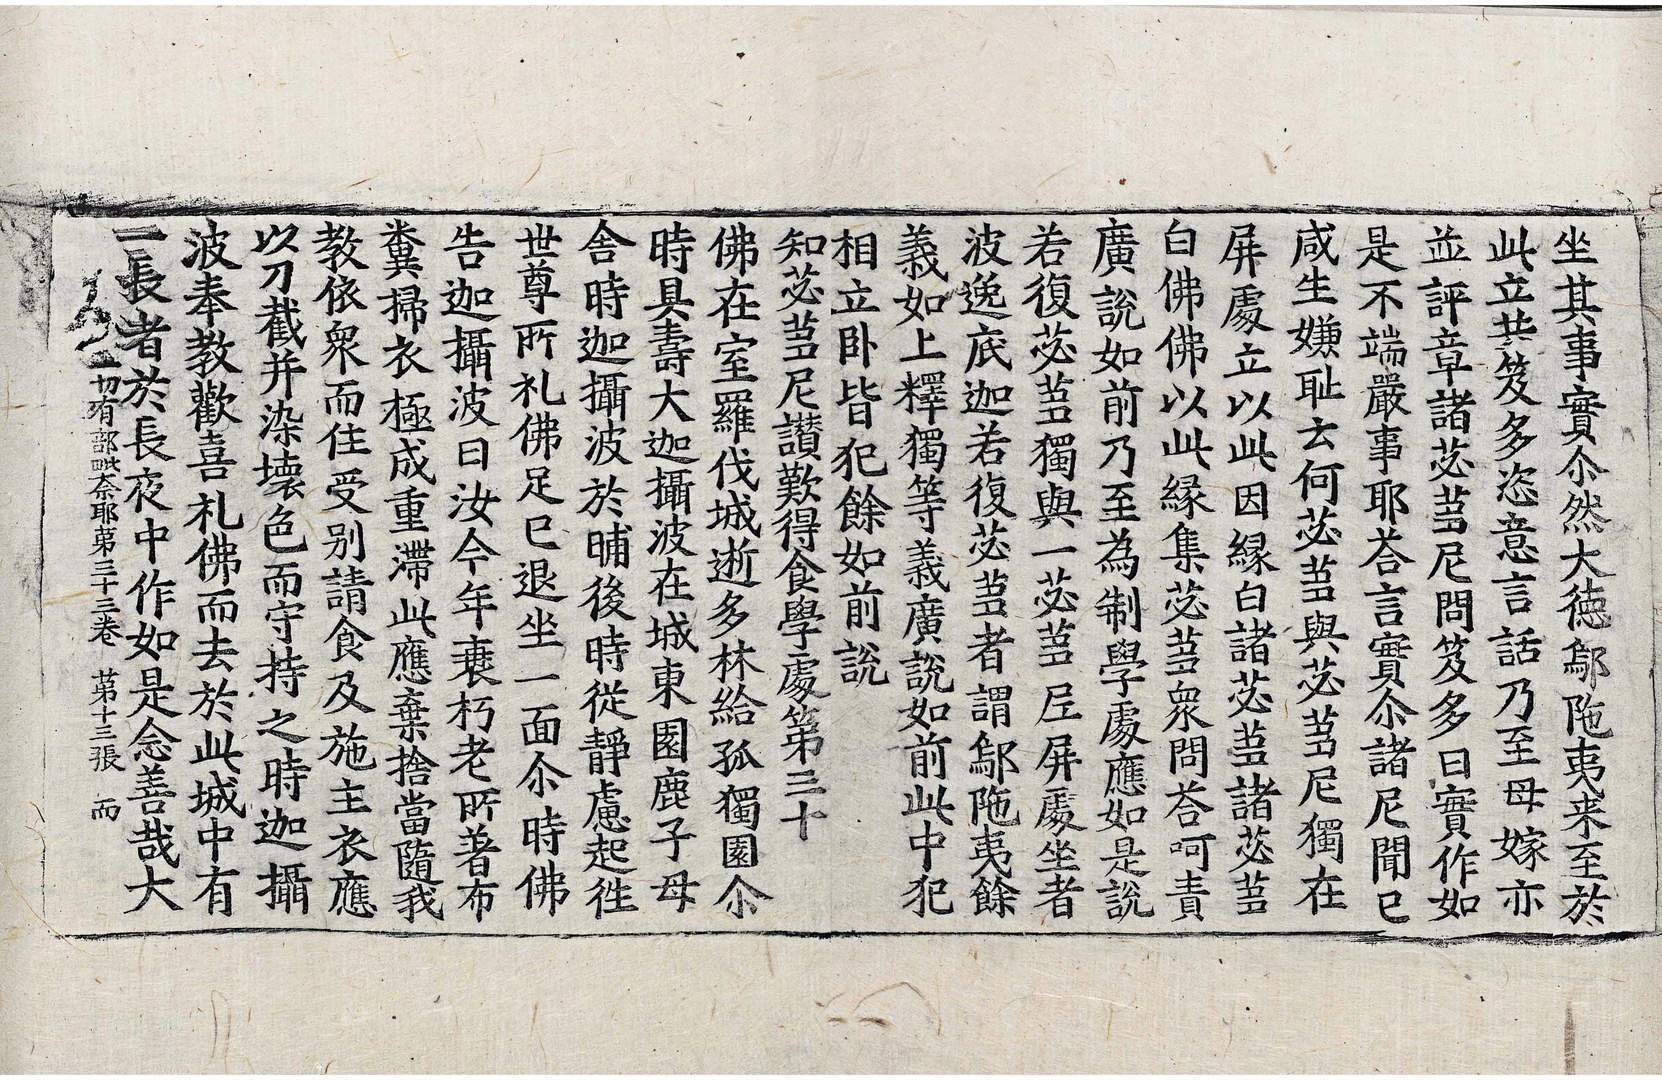 坐其事實尒然大德鄔陁夷来至於
此立共笈多恣意言話乃至母嫁亦
並評章諸苾芻尼問笈多曰實作如
是不端嚴事耶荅言實尒諸尼聞已
咸生嫌耻云何苾芻與苾芻尼獨在
屏處立以此因緣白諸苾芻諸苾芻
白佛佛以此緣集苾芻衆問荅呵責
廣說如前乃至為制學處應如是說
若復苾芻獨與一苾芻尼屏處坐者
波逸底迦若復苾芻者謂鄔陁夷餘
義如上釋獨等義廣說如前此中犯
相立卧皆犯餘如前說
知苾芻尼讃歎得食學處第三十
佛在室羅伐城逝多林給孤獨園尒
時具壽大迦攝波在城東園鹿子母
舍時迦攝波於晡後時從靜慮起徃
世尊所礼佛足已退坐一面尒時佛
告迦攝波曰汝今年衰朽老所著布
糞掃衣極成重滯此應棄捨當隨我
教依衆而住受别請食及施主衣應
以刀截并染壊色而守持之時迦攝
波奉教歡喜礼佛而去於此城中有
一長者於長夜中作如是念善哉大
一切有部毗奈耶第三十三卷　第十三張　而